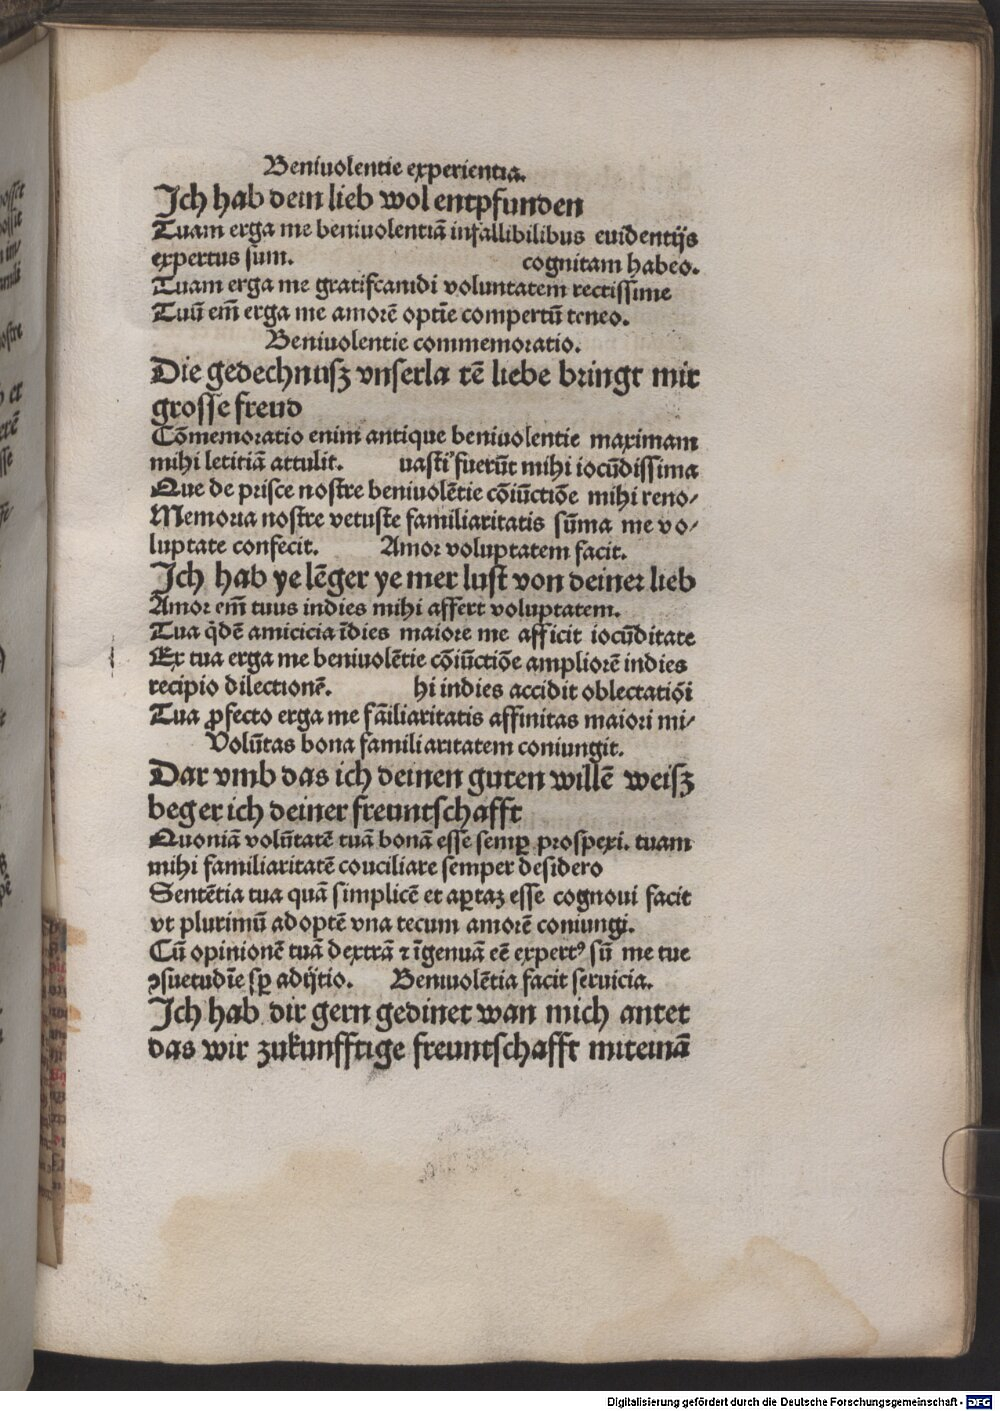 Beniuolentie experientia.
Jch hab dein lieb wol entpfunden
Tuam erga me beniuolentiã infallibilibus euidentijs
expertus sum. cognitam habeo.
Tuam erga me gratifcamdi voluntatem rectissime
Tuũ em̃ erga me amorẽ optĩe compertũ teneo.
Beniuolentie commemoratio.
Die gedechnusz vnserla tẽ liebe bringt mir
grosse freud
Cõmemoratio enim antique beniuolentie maximam
mihi letitiã attulit. uasti᾿ fuerũt mihi iocũdissima
Que de prisce nostre beniuolẽtie cõiũctiõe mihi reno⸗
Memoria nostre vetuste familiaritatis sũma me vo⸗
luptate confecit. Amor voluptatem facit.
Jch hab ye lẽger ye mer lust von deiner lieb
Amor em̃ tuus indies mihi affert voluptatem.
Tua q̃dẽ amicicia ĩdies maiore me afficit iocũditate
Ex tua erga me beniuolẽtie cõiũctiõe ampliorẽ indies
recipio dilectionẽ. hi indies accidit oblectatiõi
Tua ꝓfecto erga me fãiliaritatis affinitas maiori mi⸗
Volũtas bona familiaritatem coniungit.
Dar vmb das ich deinen guten willẽ weisz
beger ich deiner freuntschafft
Quoniã volũtatẽ tuã bonã esse semꝑ prospexi. tuam
mihi familiaritatẽ couciliare semper desidero
Sentẽtia tua quã simplicẽ et aꝑtaꝫ esse cognoui facit
vt plurimũ adoptẽ vna tecum amorẽ coniungi.
Cũ opinionẽ tuã dextrã ⁊ ĩgenuã eẽ expertꝰ sũ me tue
ꝯsuetudĩe sꝑ adijtio. Beniuolẽtia facit seruicia.
Jch hab dir gern gedinet wan mich antet
das wir zukunfftige freuntschafft miteinã
Digitalisierung gefördert durch die Deutsche Forschungsgemeinschaft - DFG